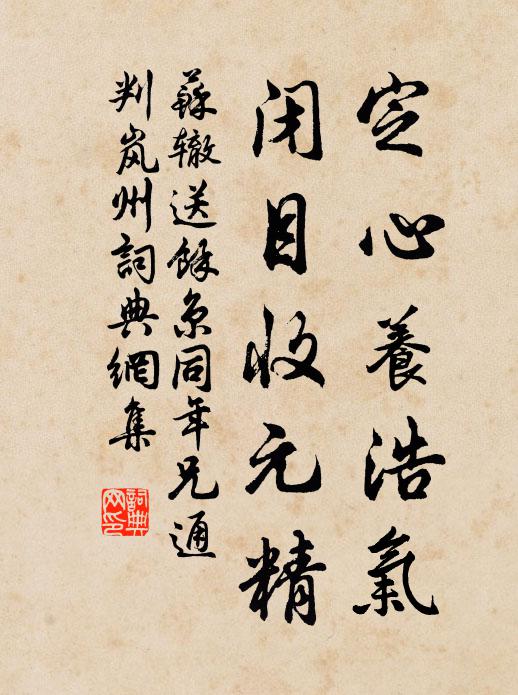 定心養浩氣
闭目收元精
蘇辙送餘京同年兄通
判岚州詞典網集
詞典
网印